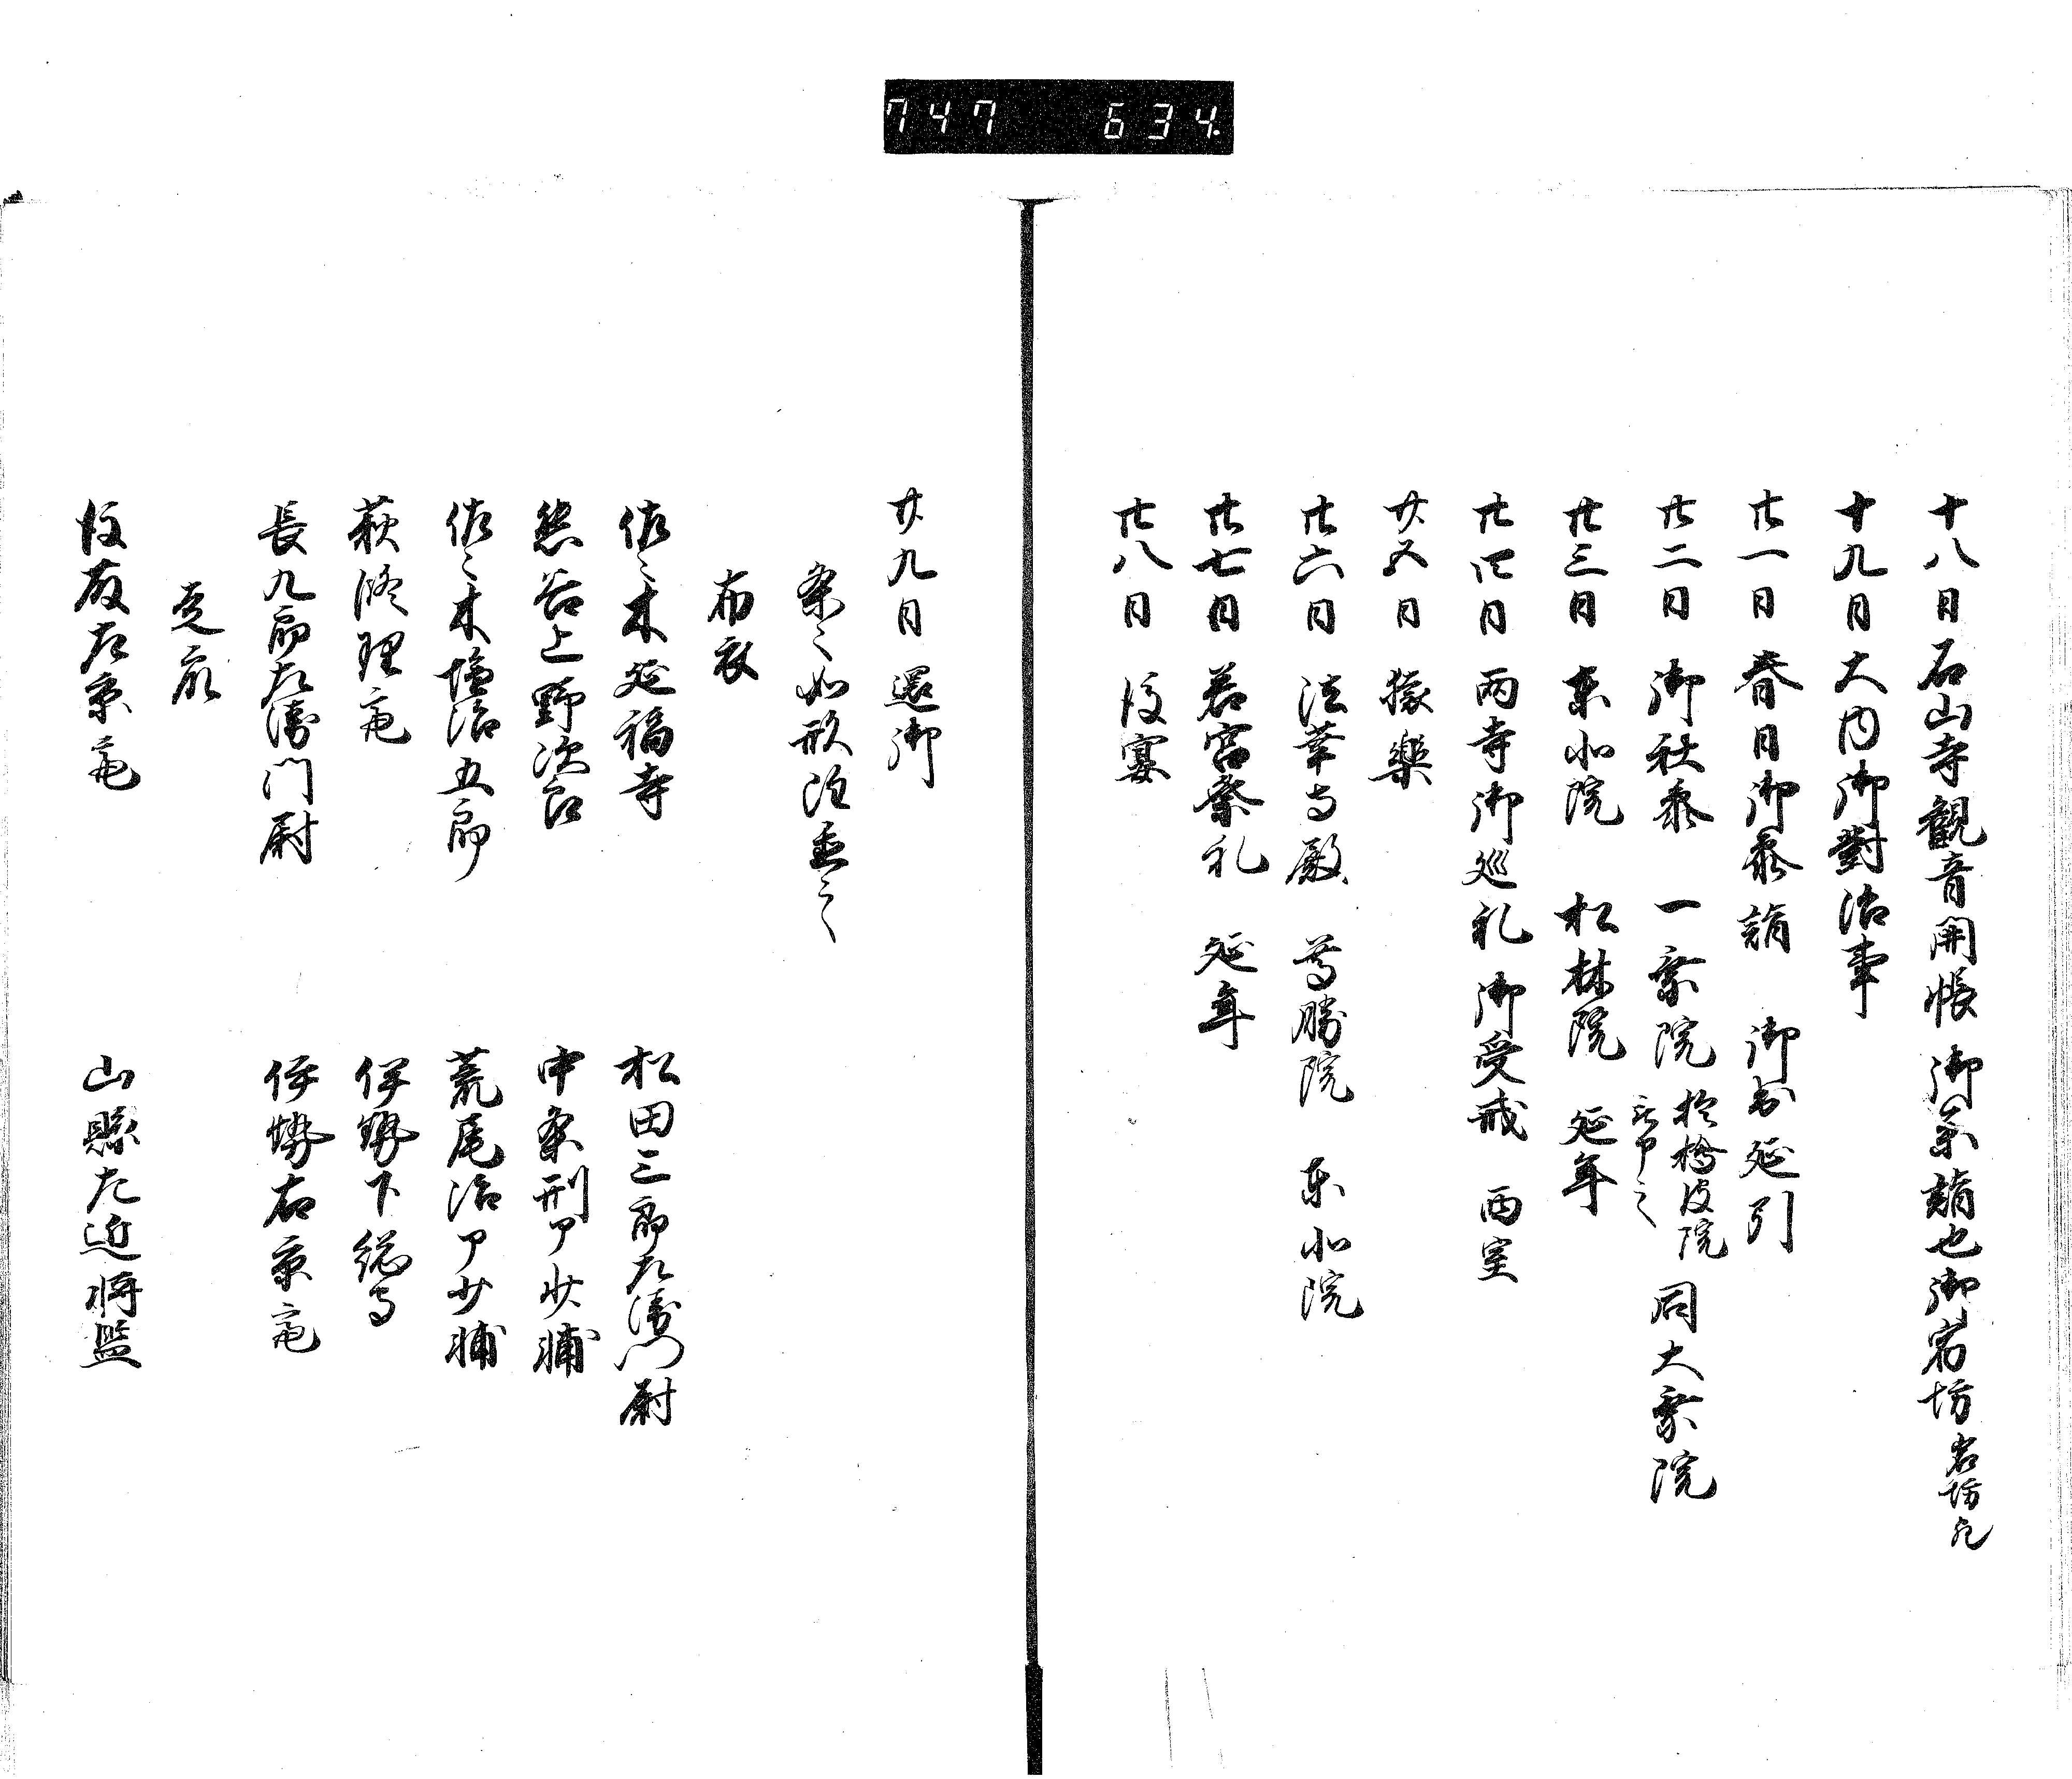 747 634
十八日石山寺観音開帳御参詣也御宿坊岩坊
十九日大内御對治事
廿一日春日御参詣 御出延引
廿二日 御社参 一乗院 於檜皮院 同大乗院
廿三日 東北院 松林院 延年
廿四日 両寺御巡礼 御受戒 西室
廿五日 猿楽
廿六日 法華寺殿 尊勝院 東北院
廿七日 若宮祭礼 延年
廿八日 後宴
廿九日 還御
条々如形注進之
布衣
佐々木延福寺 松田三郎左衛門尉
熊谷上野次郎 中条刑ア少輔
佐々木塩冶五郎 荒尾治ア少輔
萩修理亮 伊勢下総守
長九郎左衛門尉 伊勢右京亮
走衆
後藤左京亮 山縣左近将監